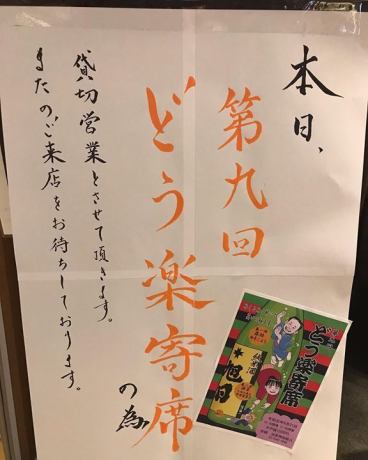 本日、
第九回
どう楽寄席
の為
貸切営業とさせて頂きます。
またのご来店をお待ちしております。
どう楽寄席